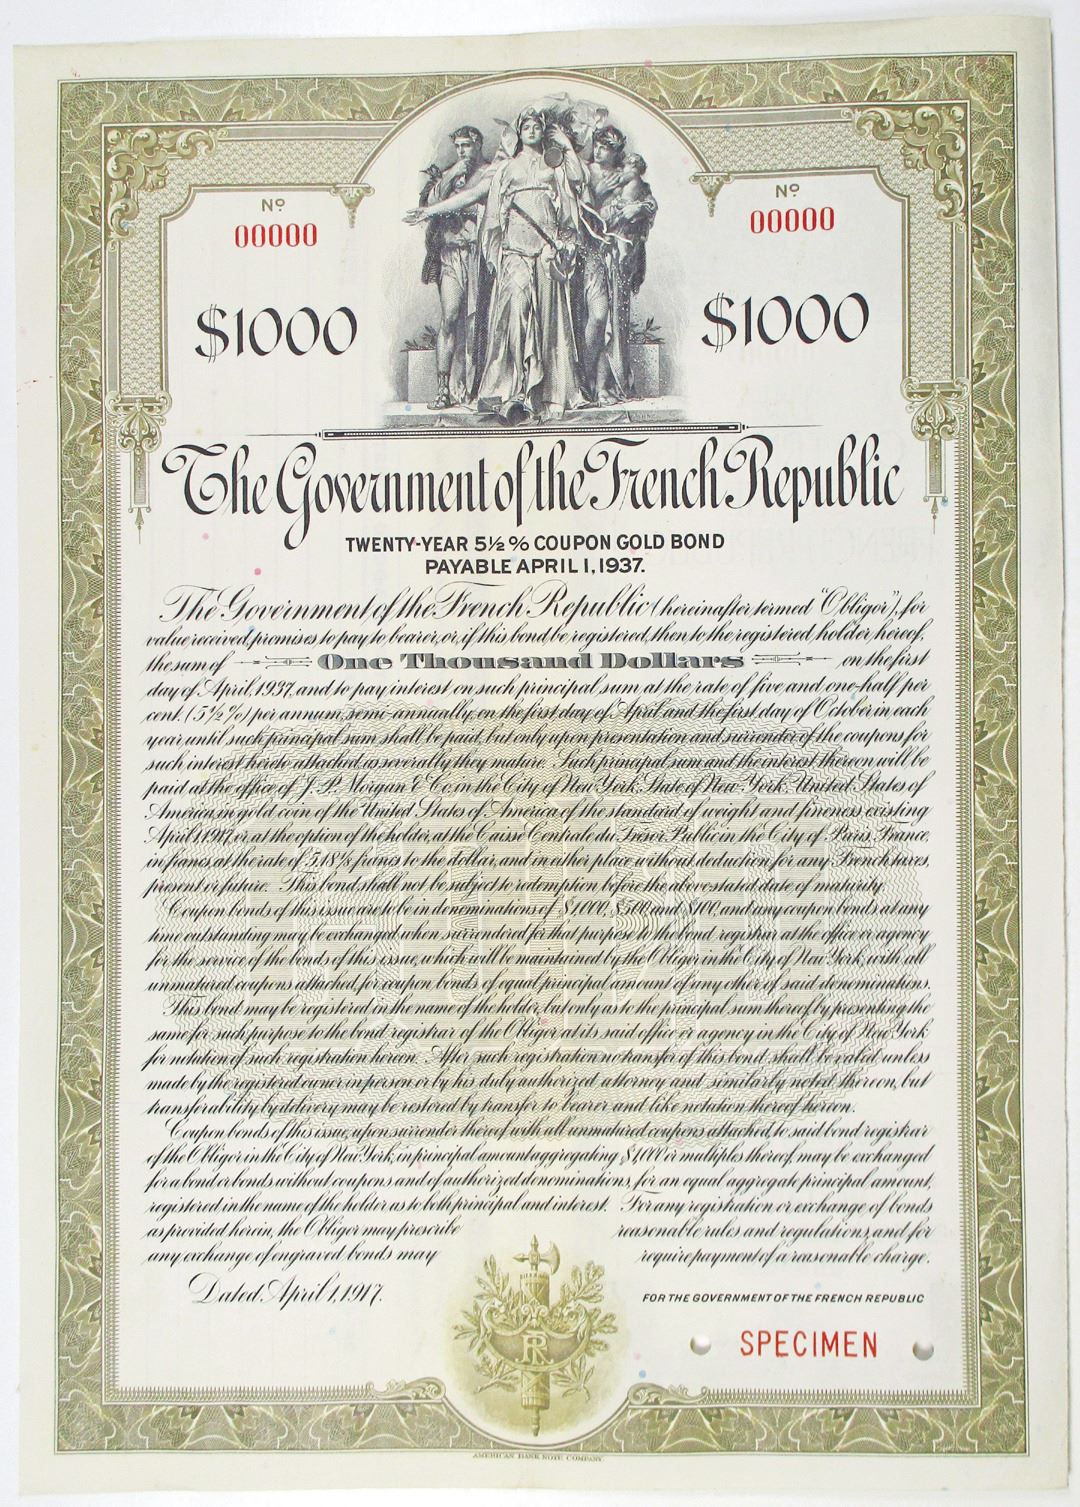 Nº
00000
Nº
00000
$1000
$1000
The Government of the French Republic
TWENTY-YEAR 5½% COUPON GOLD BOND
PAYABLE APRIL 1, 1937.
The Government of the French Republic (hereinafter termed "Obligor"), for
value received, promises to pay to bearer, or, if this bond be registered, then to the registered holder hereof,
the sum of One Thousand Dollars on the first
day of April, 1937, and to pay interest on such principal sum at the rate of five and one-half per
cent. (5½%) per annum, semi-annually, on the first day of April and the first day of October in each
year until such principal sum shall be paid, but only upon presentation and surrender of the coupons for
such interest hereto attached as severally they mature. Such principal sum and the interest thereon will be
paid at the office of J. P. Morgan & Co. in the City of New York, State of New York, United States of
America, in gold coin of the United States of America of the standard of weight and fineness existing
April 1, 1917, or, at the option of the holder, at the Caisse Centrale du Trésor Public in the City of Paris, France,
in francs at the rate of 5.18⅛ francs to the dollar, and in either place without deduction for any French taxes,
present or future. This bond shall not be subject to redemption before the above stated date of maturity.
Coupon bonds of this issue are to be in denominations of $1000, $500 and $100, and any coupon bonds at any
time outstanding may be exchanged when surrendered for that purpose to the bond registrar at the office or agency
for the service of the bonds of this issue, which will be maintained by the Obligor in the City of New York, with all
unmatured coupons attached, for coupon bonds of equal principal amount of any other of said denominations.
This bond may be registered in the name of the holder, but only as to the principal sum thereof, by presenting the
same for such purpose to the bond registrar of the Obligor at its said office or agency in the City of New York
for notation of such registration hereon. After such registration no transfer of this bond shall be valid unless
made by the registered owner in person or by his duly authorized attorney and similarly noted thereon, but
transferability by delivery may be restored by transfer to bearer and like notation thereof hereon.
Coupon bonds of this issue, upon surrender thereof with all unmatured coupons attached, to said bond registrar
of the Obligor in the City of New York, in principal amount aggregating $1,000 or multiples thereof, may be exchanged
for a bond or bonds without coupons and of authorized denominations, for an equal aggregate principal amount,
registered in the name of the holder as to both principal and interest. For any registration or exchange of bonds
as provided herein, the Obligor may prescribe reasonable rules and regulations, and for
any exchange of engraved bonds may require payment of a reasonable charge.
Dated April 1, 1917.
FOR THE GOVERNMENT OF THE FRENCH REPUBLIC
SPECIMEN
RF
AMERICAN BANK NOTE COMPANY.